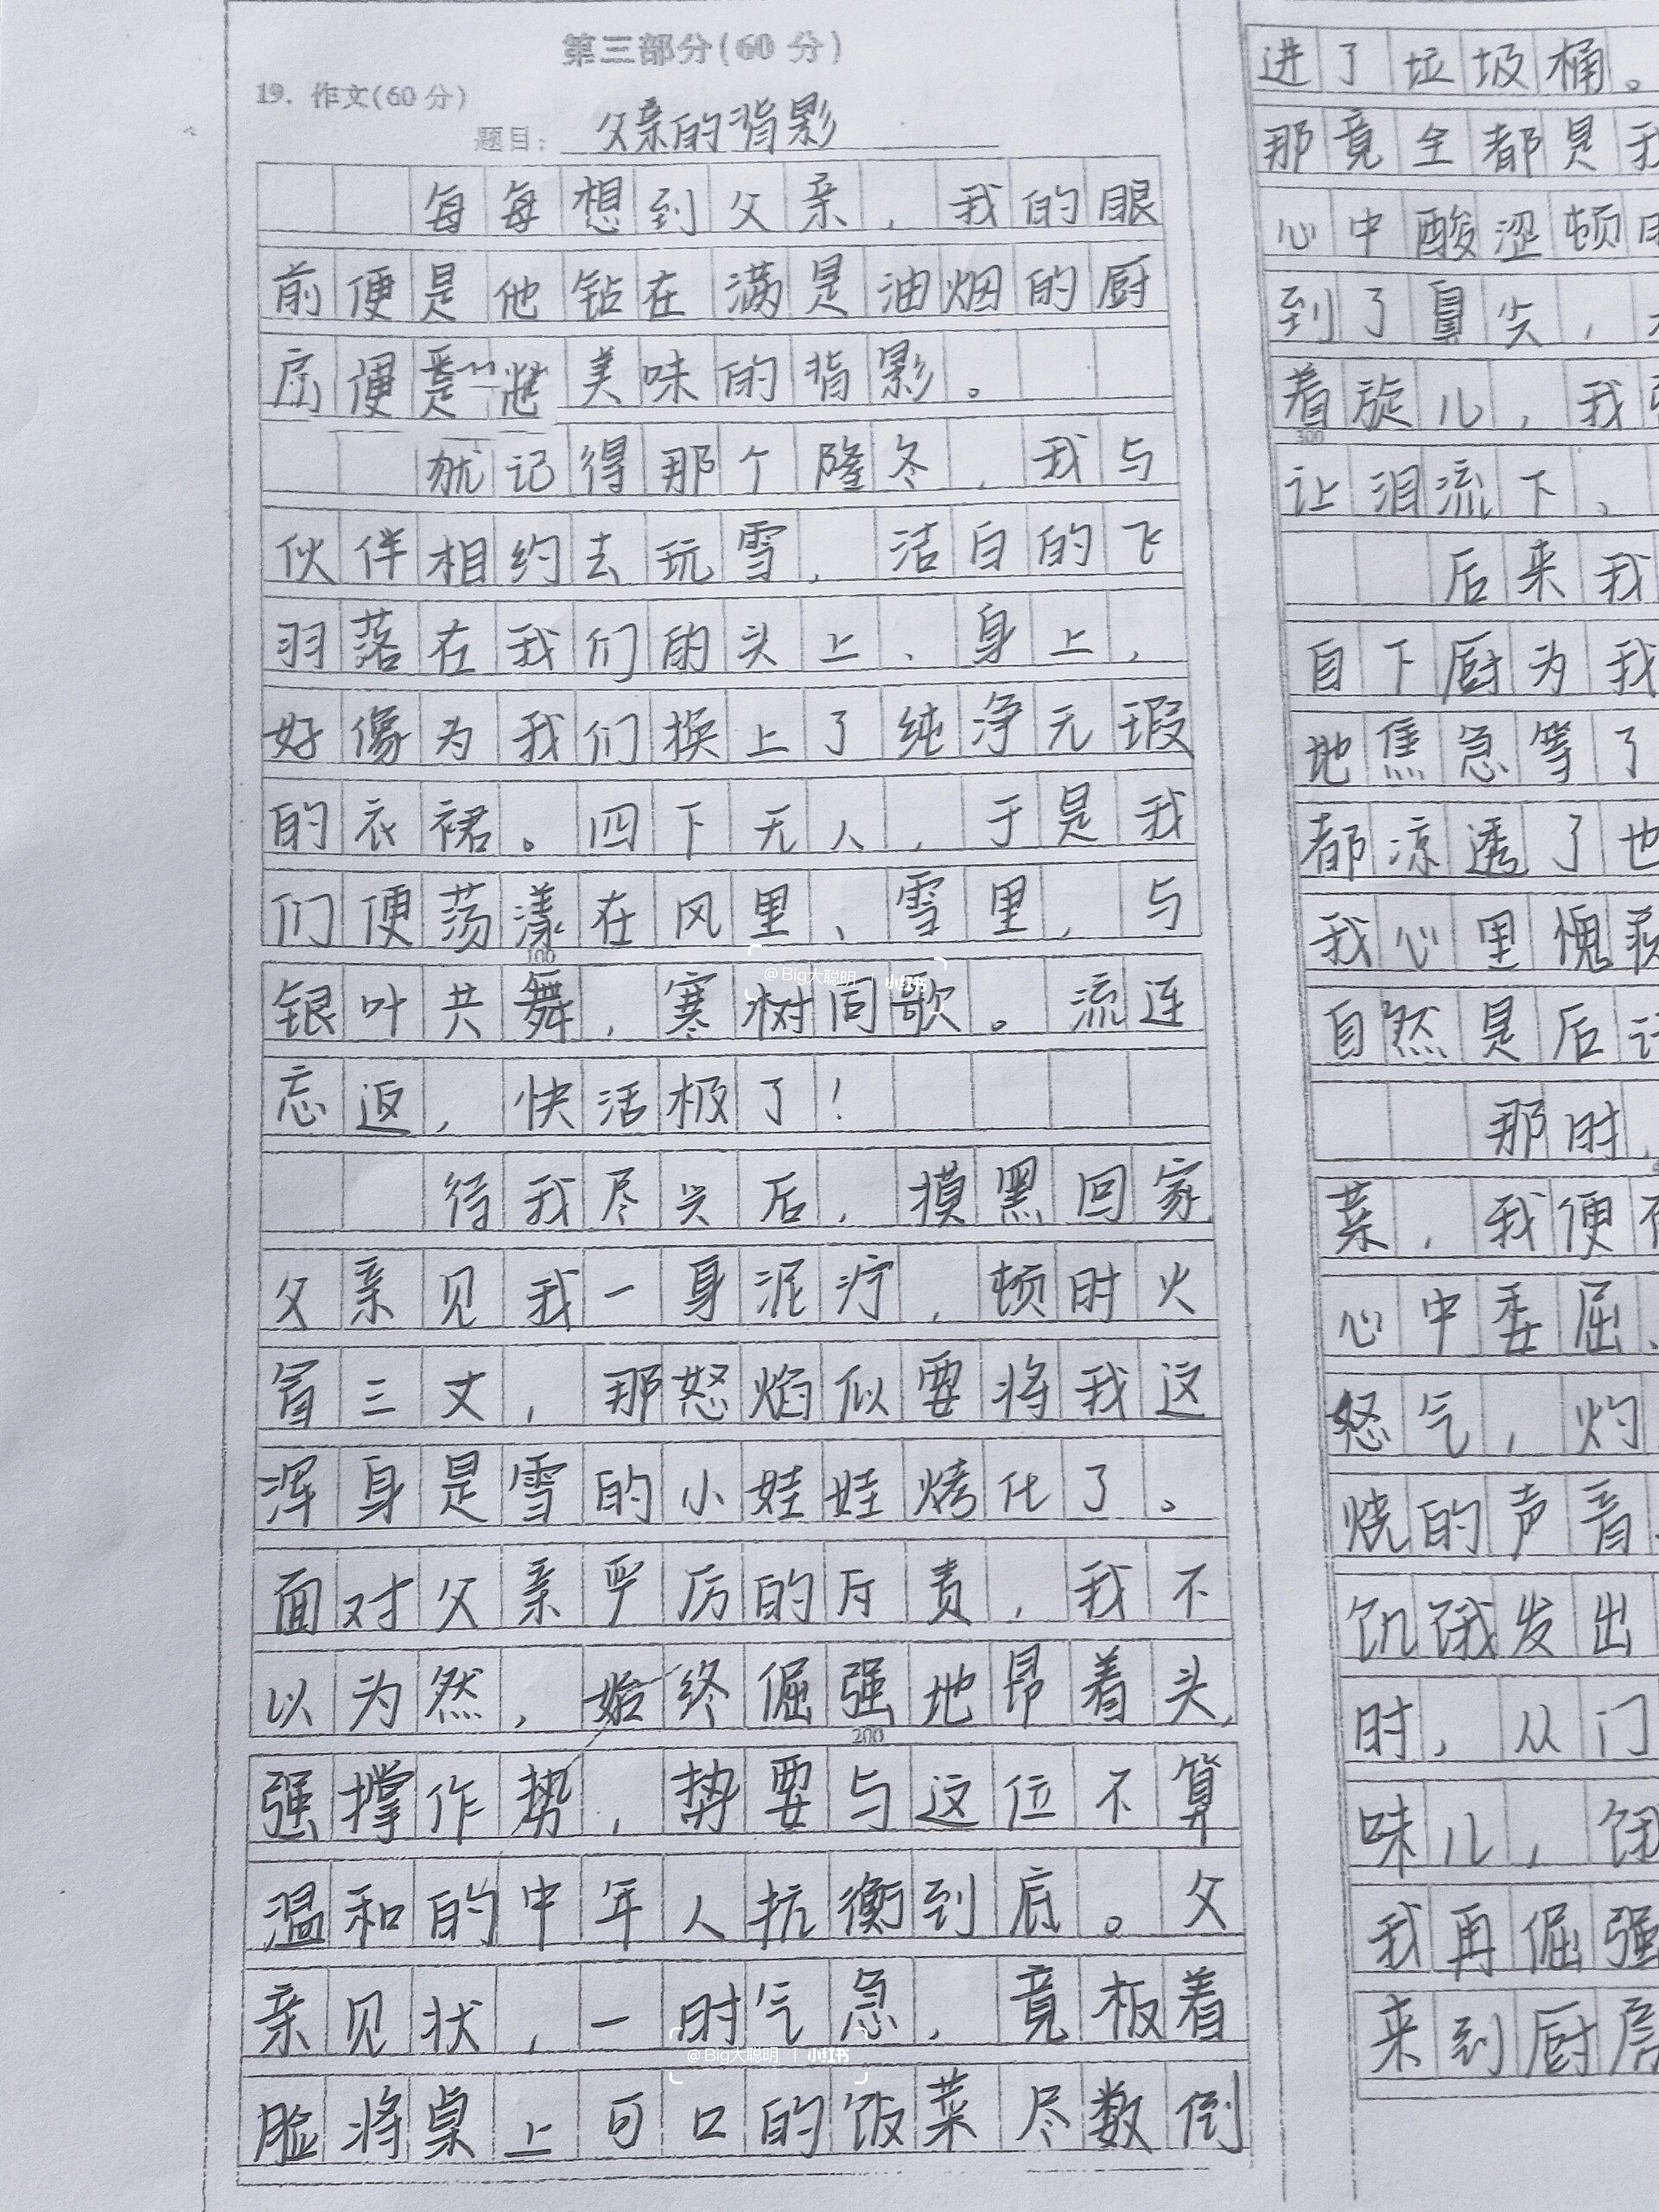 第三部分(60 分)
19. 作文(60 分)
题目: 父亲的背影
每每想到父亲,我的眼
前便是他钻在满是油烟的厨
房便 美味的背影。
犹记得那个隆冬,我与
伙伴相约去玩雪,洁白的飞
羽落在我们的头上、身上,
好像为我们换上了纯净无瑕
的衣裙。四下无人,于是我
们便荡漾在风里、雪里,与
100
银叶共舞,寒树同歌。流连
@Big大聪明 | 小红书
忘返,快活极了!
待我尽兴后,摸黑回家
父亲见我一身泥泞,顿时火
冒三丈,那怒焰似要将我这
浑身是雪的小娃娃烤化了。
面对父亲严厉的斥责,我不
以为然,始终倔强地昂着头,
200
强撑作势,势要与这位不算
温和的中年人抗衡到底。父
亲见状,一时气急,竟板着
@Big大聪明 | 小红书
脸将桌上可口的饭菜尽数倒
进了垃圾桶。
那竟全都是我
心中酸涩顿时
到了鼻尖,
着旋儿,我
300
让泪流下、
后来我
自下厨为我
地焦急等了
都凉透了也
我心里愧疚
自然是后
那时,
菜,我便
心中委屈、
怒气,灼
烧的声音
饥饿发出
时,从门
味儿,饿
我再倔强
来到厨房